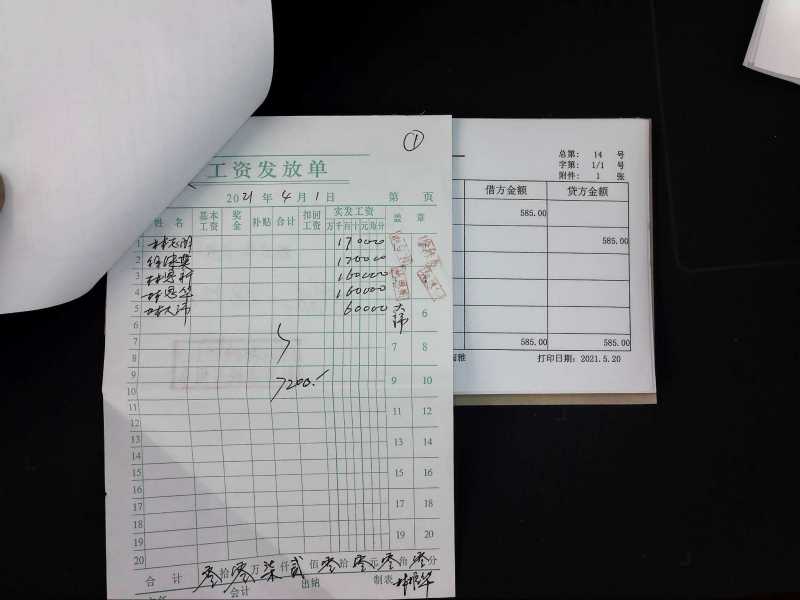 ①
工资发放单
2021 年 4 月 1 日 第 页
姓 名 基本工资 奖金 补贴 合计 扣回工资 实发工资 盖 章
万 千 百 十 元 角 分
1 170000
2 170000
3 160000
4 160000
5 林大沛 60000 大沛 6
6
7 7 8
8
9 9 10
10 7200.-
11 11 12
12
13 13 14
14
15 15 16
16
17 17 18
18
19 19 20
20
合 计 零 拾 零 万 柒 仟 贰 佰 零 拾 零 元 零 角 零 分
会计 出纳 制表
总第: 14 号
字第: 1/1 号
附件: 1 张
借方金额 贷方金额
585.00
585.00
585.00 585.00
雅 打印日期: 2021.5.20